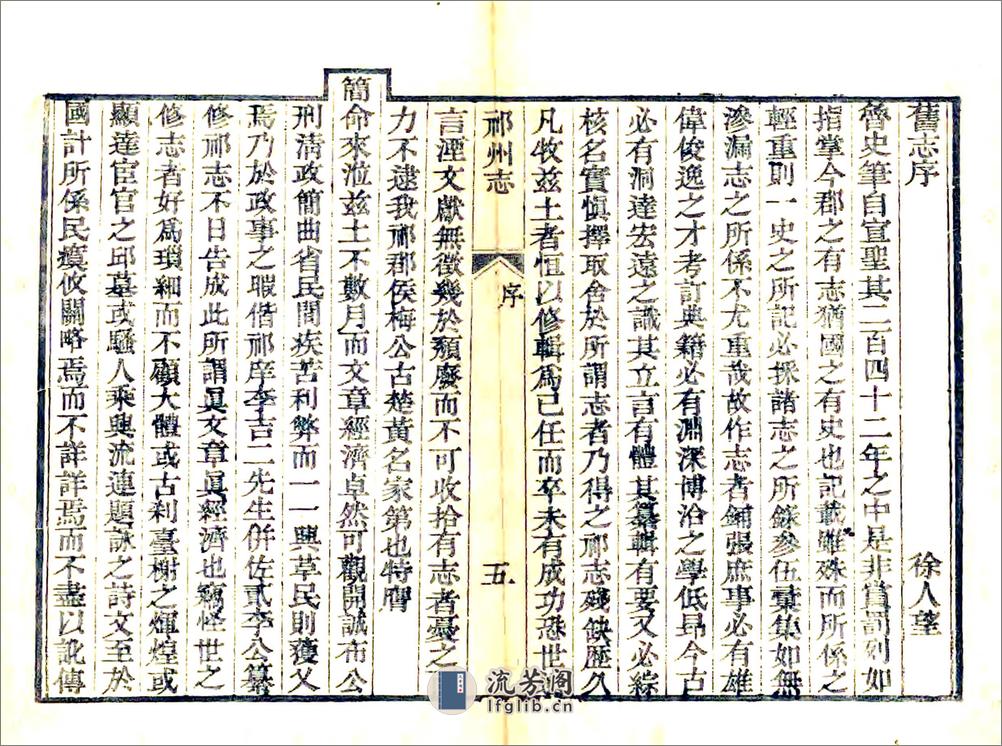 舊志序
徐人望
魯史筆自宣聖其二百四十二年之中是非賞罰列如
指掌今郡之有志猶國之有史也記載雖殊而所係之
輕重則一史之所記必採諸志之所錄參伍彙集如無
滲漏志之所係不尤重哉故作志者鋪張庶事必有雄
偉俊逸之才考訂典籍必有淵深博洽之學低昻今古
必有洞達宏遠之識其立言有體其纂輯有要又必綜
核名實愼擇取舍於所謂志者乃得之祁志殘缺歷久
凡牧茲土者恒以修輯爲己任而卒未有成功恐世
祁州志
序
五
言湮文獻無徵幾於頽廢而不可收拾有志者憂之
力不逮我祁郡侯梅公古楚黃名家第也特膺
簡命來涖茲土不數月而文章經濟卓然可觀開誠布公
刑淸政簡曲省民間疾苦利弊而一一興革民則獲父
焉乃於政事之暇偕祁庠李吉二先生併佐貳李公纂
修祁志不日告成此所謂眞文章眞經濟也竊怪世之
修志者好爲瑣細而不顧大體或古刹臺榭之煇煌或
顯達宦官之邱墓或騷人乘興流連題詠之詩文至於
國計所係民瘼攸關略焉而不詳詳焉而不盡以訛傳
流芳阁
lfglib.cn